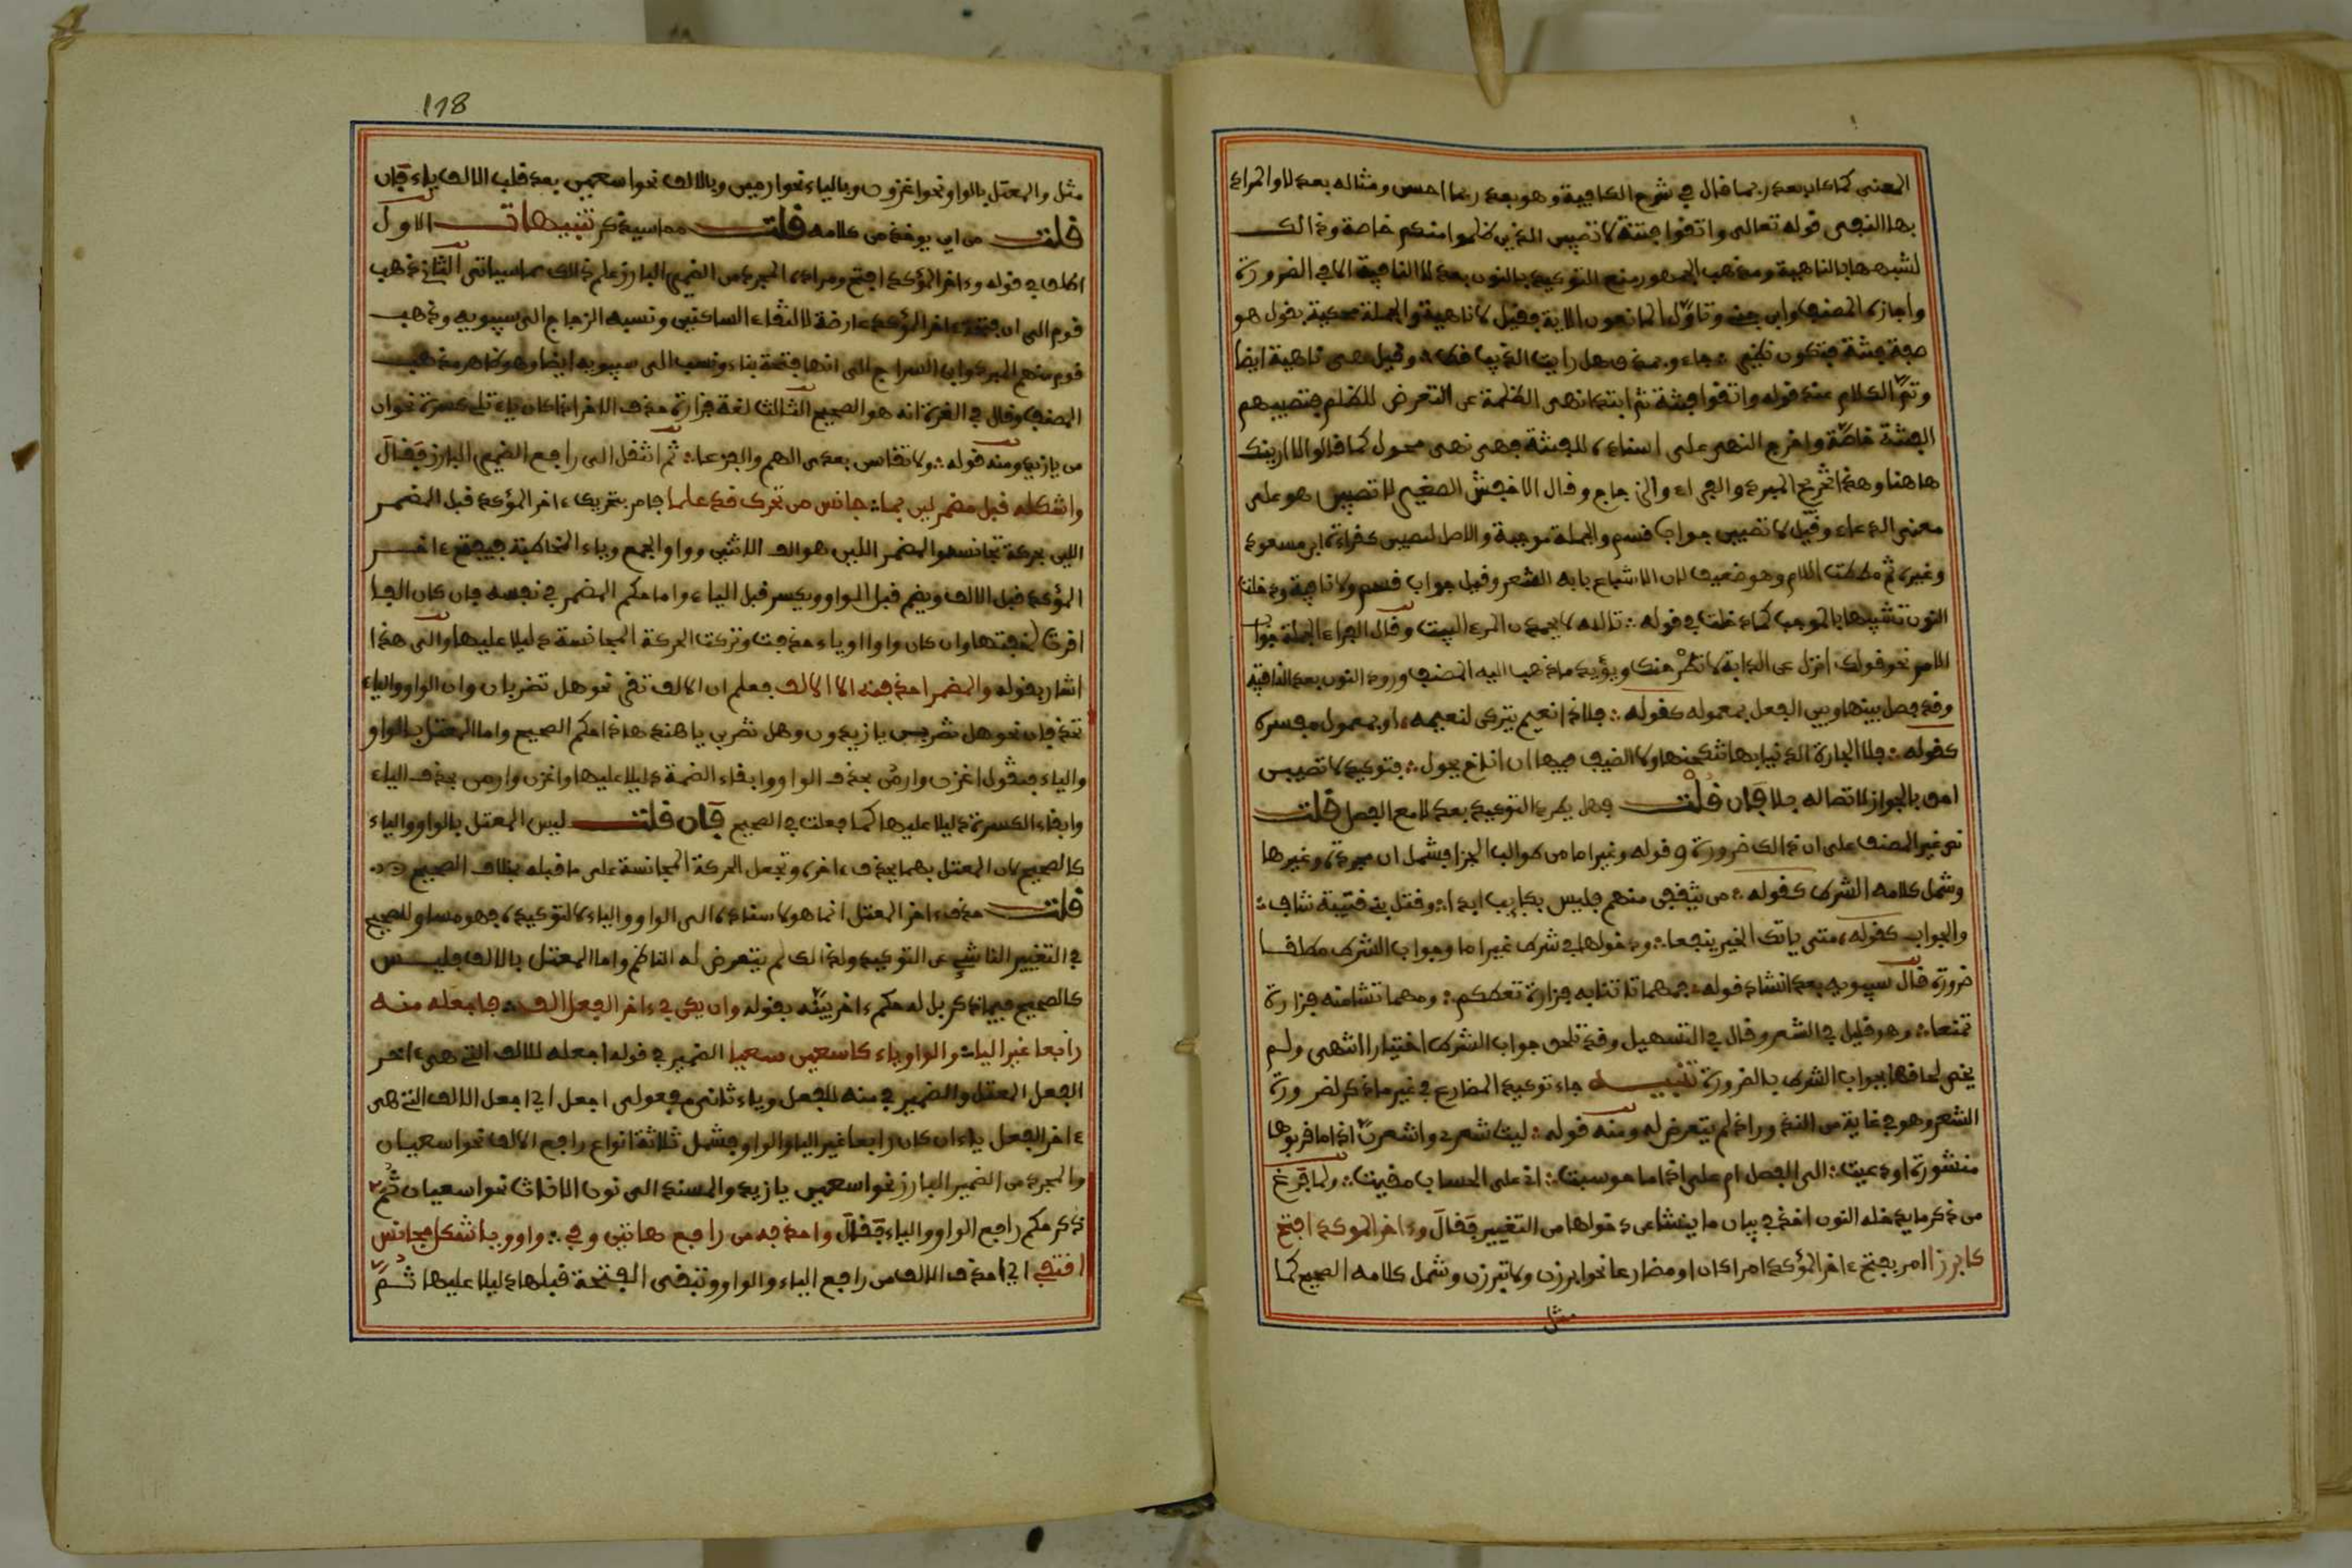 المعنى كما كان بعد ربما قال في شرح الكافية وهو بعد ربما احسن ومثاله بعد لا والمراد
بها النفى قوله تعالى واتقوا فتنة لا تصيبن الذين ظلموا منكم خاصة وذالك
لشبهها بالناهية ومذهب الجمهور منع التوكيد بالنون بعد لا النافية الا في الضرورة
واجازه المصنف وابن جنى وتأول المانعون الاية فقيل لا ناهية والجملة محكية بقول هو
صفة فتنة فتكون نظير جاءو بمذق هل رايت الذيب قط وقيل هى ناهية ايضا
وتم الكلام عند قوله واتقوا فتنة ثم ابتدا نهى الظلمة عن التعرض للظلم فتصيبهم
الفتنة خاصة واخرج النهى على اسناده للفتنة فهى نهى محول كما قالوا لا ارينك
هاهنا وهذا تخريج المبرد والفراء والزجاج وقال الاخفش الصغير لا تصيبن هو على
معنى الدعاء وقيل لا تصيبن جواب قسم والجملة موجبة والاصل لتصيبن كقراءة ابن مسعود
وغيره ثم مطلت اللام وهو ضعيف لان الاشباع بابه الشعر وقيل جواب قسم ولا نافية ودخلت
النون تشبيها بالموجب كما دخلت في قوله تالله لا يحمدن المرء البيت وقال الفراء الجملة جواب
الامر نحو قولك انزل عن الدابة لا تطرحنك ويؤيد ما ذهب اليه المصنف ورود النون بعد النافية
وقد فصل بينها وبين الفعل بمعموله كقوله فلا ذا نعيم يتركن لنعيمه او بمعمول مفسره
كقوله فلا الجارة الدنيا بها تلحينها ولا الضيف فيها ان اناخ محول فتوكيد لا تصيبن
احق بالجواز لاتصاله بلا فإن قلت فهل يطرد التوكيد بعد لا مع الفصل قلت
نص غير المصنف على ان ذالك ضرورة وقوله وغير اما من طوالب الجزا فشمل ان مجردة وغيرها
وشمل كلامه الشرط كقوله من يثقفن منهم فليس بئايب ابدا وقتل بنى قتيبة شاف
والجواب كقوله متى ياتك الخير ينفعا ودخولها في شرط غير اما وجواب الشرط مطلقا
ضرورة قال سيبويه بعد انشاد قوله فمهما تشا منه فزارة تعطكم ومهما تشا منه فزارة
تمنعا وهو قليل في الشعر وقال في التسهيل وقد تلحق جواب الشرط اختيارا انتهى ولم
يخص لحاقها بجواب الشرط بالضرورة تنبيه جاء توكيد المضارع في غير ماذكر لضرورة
الشعر وهو في غاية من الندور ولذا لم يتعرض له ومنه قوله ليت شعرى واشعرن اذا ما قربوها
منشورة ودعيت الى الفصل ام على اذا ما حوسبت انى على الحساب مقيت ولما فرغ
من ذكر ما يدخله النون اخذ في بيان ما ينشا عن دخولها من التغيير فقال وءاخر الموكد افتح
كابرزا امر بفتح ءاخر المؤكد امرا كان او مضارعا نحو ابرزن ولا تبرزن وشمل كلامه الصحيح كما
مثل
118
مثل والمعتل بالواو نحو اغزون وبالياء نحو ارمين وبالالف نحو اسعين بعد قلب الالف ياء فإن
قلت من اين يوخذ من كلامه قلت مما سيذكر تنبيهات الاول
اطلق في قوله وءاخر المؤكد افتح ومراده المجرد من الضمير البارز علم ذالك مما سياتى الثاني ذهب
قوم الى ان فتحة ءاخر المؤكد عارضة لالتقاء الساكنين ونسبه الزجاج الى سيبويه وذهب
قوم منهم المبرد وابن السراج الى انها فتحة بناء ونسب الى سيبويه ايضا وهو ظاهر مذهب
المصنف وقال في الغرة انه هو الصحيح الثالث لغة فزارة حذف الاخر اذا كان ياء تلى كسرة نحو ان
من يازيد ومنه قوله ولا تقاسن بعدى الهم والجزعا ثم انتقل الى رافع الضمير البارز فقال
واشكله قبل مضمر لين بما جانس من تحرك قد علما جامر بتحريك ءاخر المؤكد قبل المضمر
اللين بحركة تجانس هو المضمر اللين هو الف الاثنين وواو الجمع وياء المخاطبة فيفتح ءاخر
المؤكد قبل الالف ويضم قبل الواو ويكسر قبل الياء واما حكم المضمر في نفسه فان كان الفا
اقرت لخفتها وان كان واوا او ياء حذفت وتركت الحركة المجانسة دليلا عليها والى هذا
اشار بقوله والمضمر احذفنه الا الالف فعلم ان الالف تقر نحو هل تضربان وان الواو والياء
تحذفان نحو هل تضربن يا زيدون وهل تضربن يا هند هاذا حكم الصحيح واما المعتل بالواو
والياء فتقول اغزن وارمن بحذف الواو وابقاء الضمة دليلا عليها واغزن وارمن بحذف الياء
وابقاء الكسرة دليلا عليها كما فعلت في الصحيح فإن قلت ليس المعتل بالواو والياء
كالصحيح لان المعتل بهما يحذف ءاخره وتجعل الحركة المجانسة على ما قبله بخلاف الصحيح
قلت حذف ءاخر المعتل انما هو لاسناده الى الواو والياء لا لتوكيده فهو مساو للصحيح
في التغيير الناشى عن التوكيد ولذالك لم يتعرض له الناظم واما المعتل بالالف فليس
كالصحيح فيما ذكر بل له حكم ءاخر بينه بقوله وان يكن في ءاخر الفعل الف فاجعله منه
رافعا غير اليا والواو ياء كاسعين سعيا الضمير في قوله اجعله للالف التى هى ءاخر
الفعل المعتل والضمير في منه للفعل وياء ثانى مفعولى اجعل اى اجعل الالف التى هى
ءاخر الفعل ياء ان كان رافعا غير الياء والواو فشمل ثلاثة انواع رافع الالف نحو اسعيان
والمجرد من الضمير البارز نحو اسعين يا زيد والمسند الى نون الاناث نحو اسعينان ثم
ذكر حكم رافع الواو والياء فقال واحذفه من رافع هاتين وفي واو ويا شكل مجانس
اقتفي اى احذف الالف من رافع الياء والواو وتبقى الفتحة قبلها دليلا عليها ثم